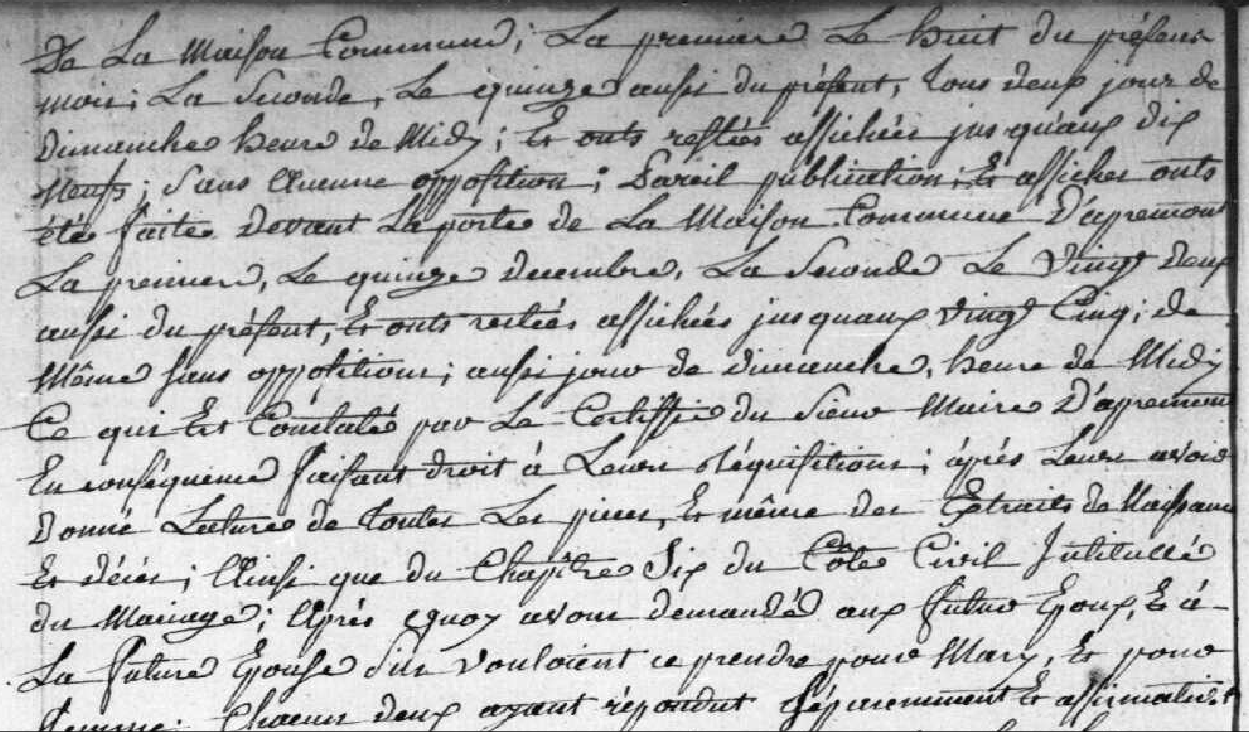 De La Maison Commune; La premiere Le huit du présent
mois; La Seconde, Le quinze aussi du présent, Tous deux jour de
Dimanche heure de Midy; Et onts restées affichées jusquaux dix
Neufs; Sans Aucune opposition; Pareil publication; Et affiches onts
été faite Devant La porte de La Maison Commune D'apremont
La premiere, Le quinze decembre, La Seconde Le Vingt deux
aussi du présent, Et onts restées affichées jusquaux vingt Cinq; de
Même sans oppositions; aussi jour de dimanche, heure de Midy
Ce qui Est Constaté par Le Certiffié du Sieur Maire D'apremont
En conséquence faisant droit à Leurs Réquisitions; après Leurs avoir
Donné Lecture de Toutes Les pieces, Et même des Extraits de Naissance
Et décés; Ainsi que du Chapitre Six du Côde Civil Intitullé
du Mariage; Après Quoy avons demandé aux futur Epoux, Et à
La future Epouse s'ils vouloient ce prendre pour Mary, Et pour
femme; Chacuns deux ayant répondut Séparemment Et affirmativt